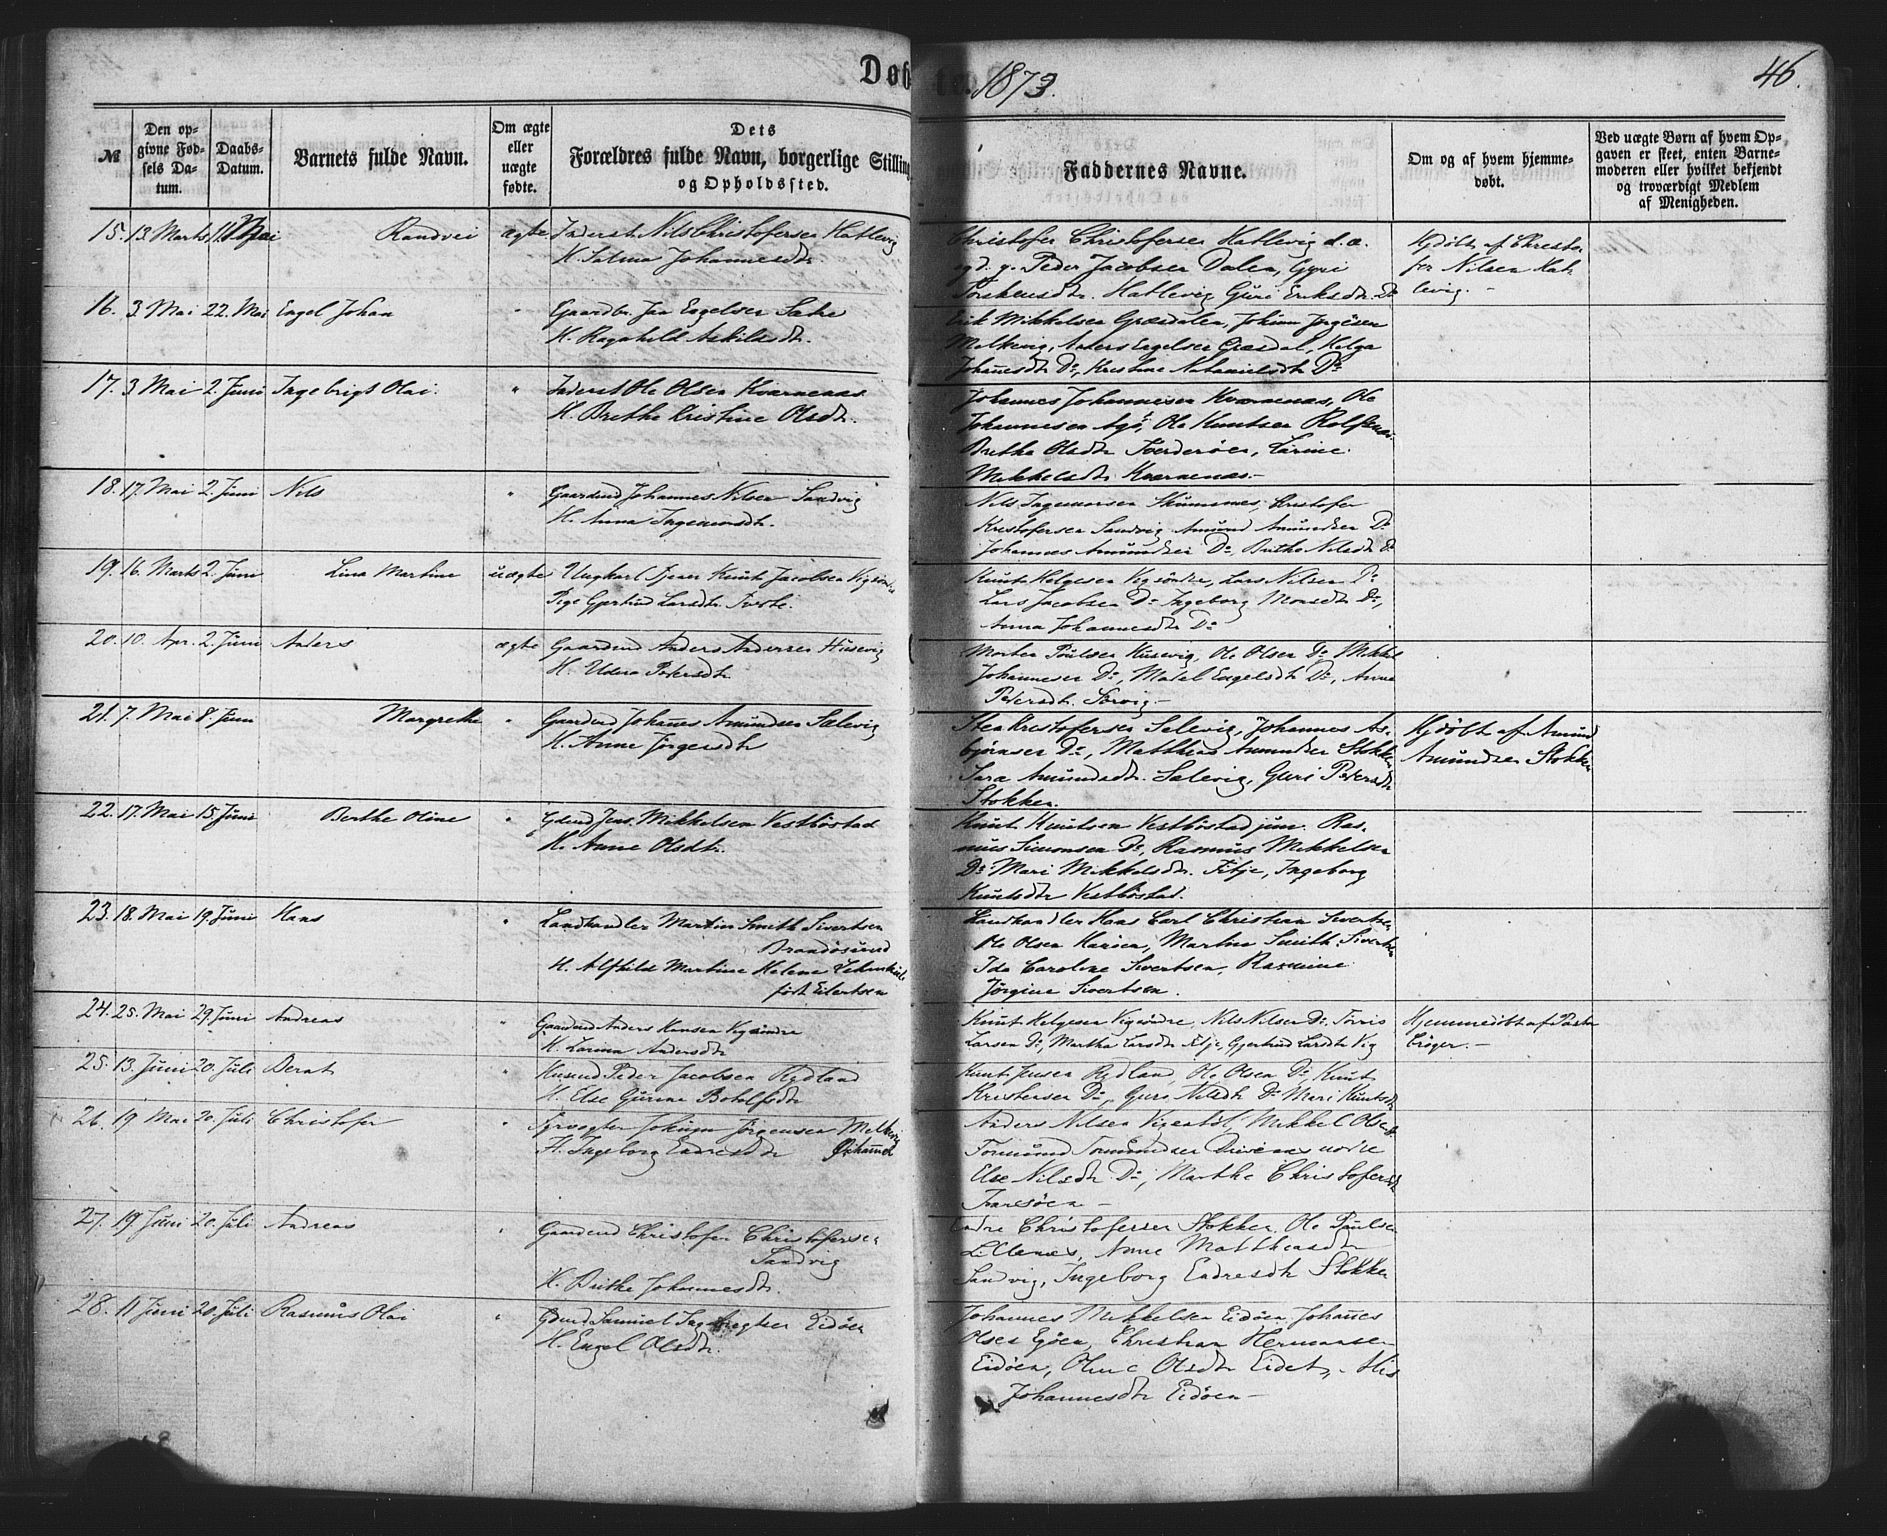 Døbte. 1873. 46.
№ | Den opgivne Fødsels Datum. | Daabs-Datum. | Barnets fulde Navn. | Om ægte eller uægte fødte. | Dets Forældres fulde Navn, borgerlige Stilling og Opholdssted. | Faddernes Navne. | Om og af hvem hjemmedøbt. | Ved uægte Børn af hvem Opgaven er skeet, enten Barnemoderen eller hvilket bekjendt og troværdigt Medlem af Menigheden.
15. 13. Marts 11. Mai Randvei ægte Inderst Nils Christofersen Hatlevig
H. Salma Johannesdtr.
Christofer Christofersen Hatlevig d. æ.
og d. y. Peder Jacobsen Dalen, Gyri
Torstensdtr. Hatlevig Guri Eriksdtr. Do
Hjdøbt af Christo
fer Nilsen Hat
levig. –
16. 3. Mai 22. Mai Engel Johan " Gaardbr. Jan Engelsen Sake
H. Ragnhild Askildsdtr.
Erik Mikkelsen Græsdalen, Jokum Jørgesen
Melkevig, Anders Engelsen Græsdal, Helga
Johanesdtr Do, Kristine Nataníelsdtr Do
17. 3 Mai 2. Juni Ingebrigt Olai. " Inderst Ole Olsen Kvarnenæs
H. Brethe Kristine Olsdtr.
Johannes Johannesen Kvarnenæs, Ole
Johannesen Agø, Ole Knutsen Rolfsnes
Bretha Olsdtr Sverderøen, Larine
Mikkelsdtr Kvarnenæs. –
18. 17. Mai 2. Juni Nils " Gaardmd Johannes Nilsen Sandvig
H. Anna Ingemorsdtr.
Nils Ingemorsen Skumsnes, Cristofer
Kristofersen Sandvig Amund Amundsen Do
Johannes Amundsen Do, Brithe Nilsdtr Do
19. 16. Marts 2. Juni Lina Martine uægte Ungkarl Tjener Knut Jacobsen Vigsøndre
Pige Gjertrud Larsdtr.
Knut Helgesen Vigsøndre, Lars Nilsen Do
Lars Jacobsen Do Ingeborg Monsdtr Do,
Anna Johannesdtr Do
20. 10. Apr. 2. Juni Anders ægte Gaardmd Anders Andersen Husevig
H. Petersdtr
Morten Poulsen Husevig, Ole Olsen Do Mikkel
Johannesen Do, Matel Engelsdtr Do, Anne
Petersdtr. Sørvig –
21. 7. Mai 8. Juni Margrethe " Gaardmd Johanes Amundsen Sælevig
H. Anne Jørgensdtr
Sten Kristofersen Selevig, Johannes As-
bjørnsen Do, Matthias Amundsen Stokken
Sara Amundsdtr. Sælevig, Guri Petersdtr
Stokken.
Hjdøbt af Amund
Amundsen Stokken
22. 17. Mai 15. Juni Berthe Oline " Gdmd Jens Mikkelsen Vestbøstad
H. Anne Olsdtr.
Knut Knutsen Vestbøstad jun. Ras-
mus Simonsen Do, Rasmus Mikkelsen
Do Mari Mikkelsdtr. Fitje, Ingeborg
Knutsdtr Vestbøstad.
23. 18. Mai 19. Juni Hans " Landhandler Martin Smith Sivertsen
Brandøsund
H. Alfhild Martine Helene
født Eilertsen
Landhandler Hans Carl Christian Sivertsen
Ole Olsen Karøen, Martin Smith Sivertsen
Ida Caroline Sivertsen, Rasmine
Jørgine Sivertsen.
24. 25. Mai 29. Juni Andreas " Gaardmd Anders Hansen Vigsøndre
H. Larina Andersdtr
Knut Helgesen Vigsøndre, Nils Nilsen Do, Torris
Larsen Do, Martha Larsdtr Fitje, Gjertrud Larsdtr Vig
Hjemmedøbt af Pastor
Crøger. –
25. 13. Juni 20. Juli Bernt " Husmd Peder Jacobsen Rydland
H. Else Gurine Botolfsdtr
Knut Jensen Rydland, Ole Olsen Do, Knut
Kristensen Do, Guri Nilsdtr Do Mari Knutsdtr
26. 19 Mai 20. Juli Christofer " Fyrvogter Jokum Jørgensen Melkevig
H. Ingeborg Endresdtr
Anders Nilsen Mikkel Olsen
Tormund Tormundsen nordre
Else Nilsdtr Do, Marthe Christofersdtr
–
27. 19 Juni 20. Juli Andreas " Gaardmd Christofer Christofersen
Sandvig
H. Brithe Johannesdtr.
Endre Christofersen Stokken Ole Poulsen
Lillenes, Anne Matthiasdtr
Sandvig, Ingeborg Endresdtr Stokken
28. 11 Juni 20. Juli Rasmus Olai " Gdmd Samuel Ingebregtsen Eidøen
H. Engel Olsdtr.
Johannes Mikkelsen Eidøen, Johannes
Olsen Egøen, Christian Hermansen
Eidøen, Oline Olsdtr Eidet,
Johannesdtr Eidøen –